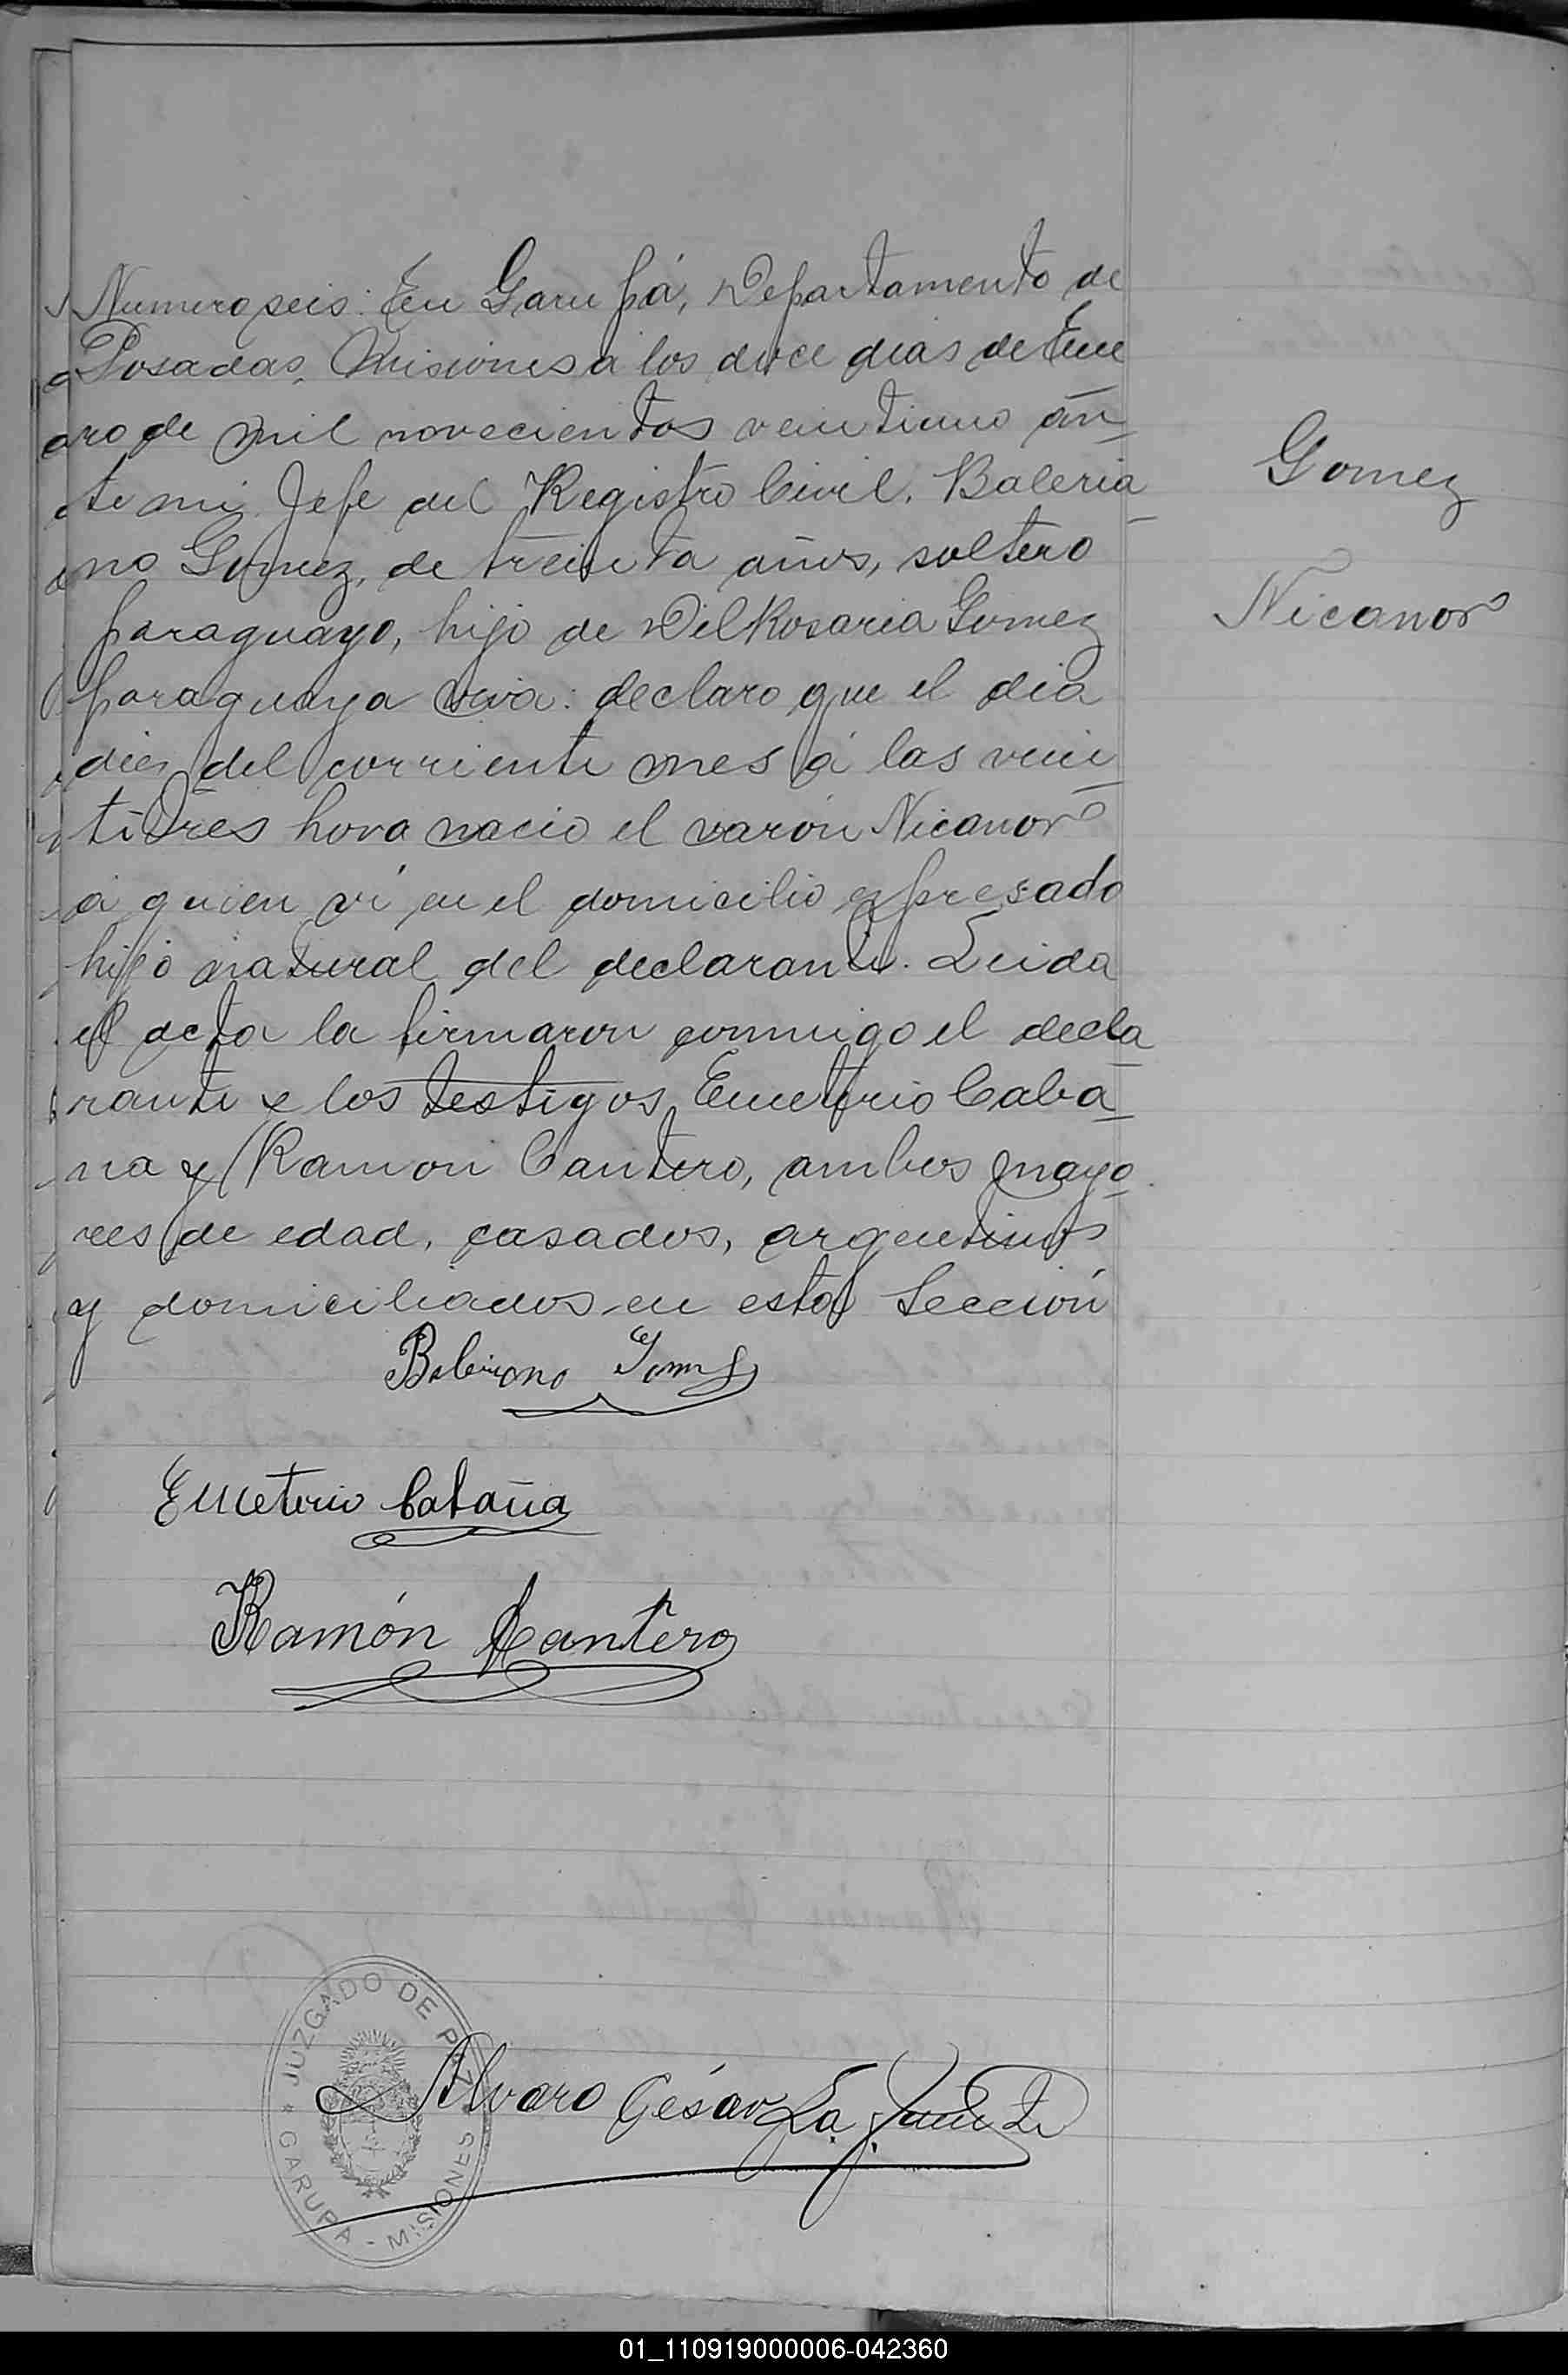 Numero seis: En Garupá, Departamento de
Posadas, Misiones a los doce dias de Ene
ro de mil novecientos veintiuno an-
te mi Jefe del Registro Civil. Baleria-
no Gomez, de treinta años, soltero
paraguayo, hijo de Del Rosaria Gomez
paraguaya viva: declaro que el dia
diez del corriente mes á las vein-
titres hora nacio el varon Nicanor
á quien ví en el domicilio espresado
hijo natural del declarante. Leida
el acta la firmaron conmigo el decla-
rante y los testigos Emeterio Caba-
na y Ramon Cantero, ambos mayo-
res de edad, casados, argentinos
y domiciliados en esta Sección
Baleriano Gomez
Emeterio Cabaña
Ramón Cantero
Alvaro César La Fuente
Gomez
Nicanor
JUZGADO DE PAZ * GARUPA - MISIONES *
01_110919000006-042360